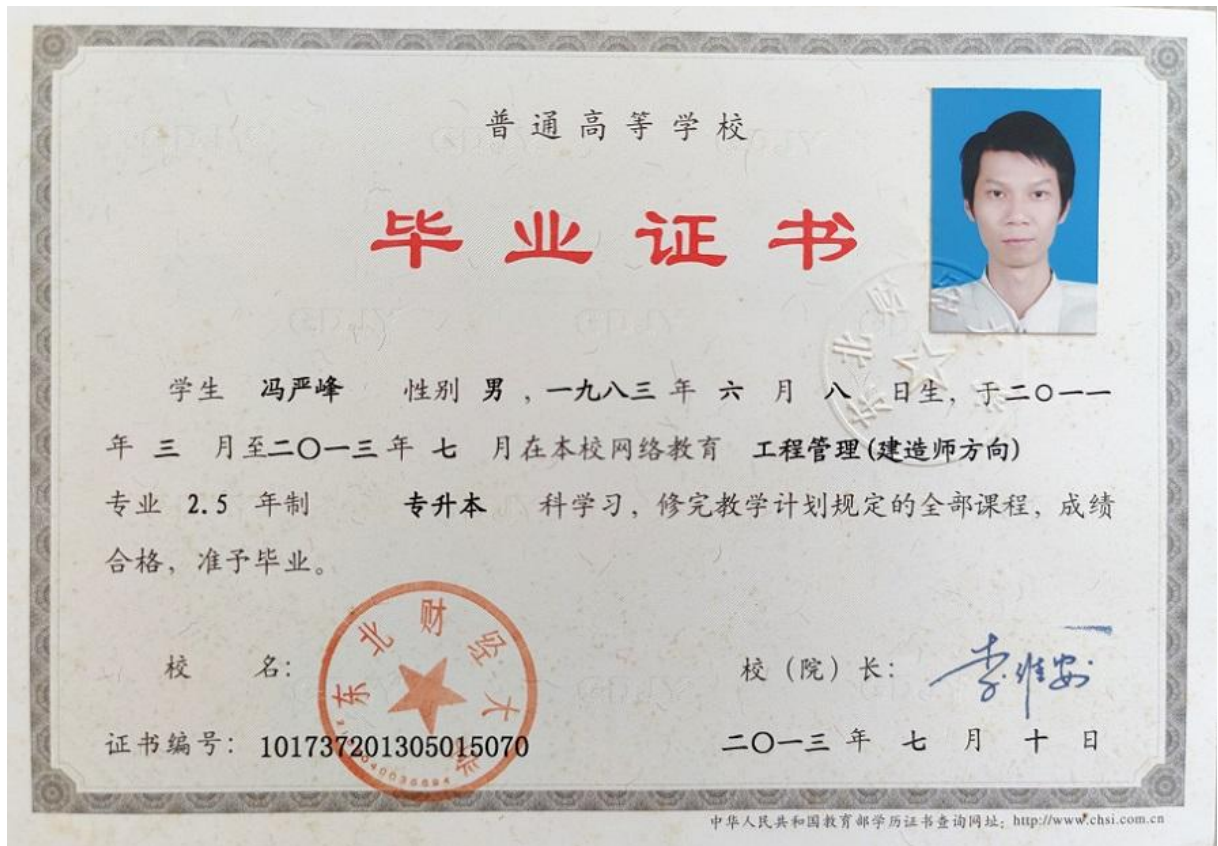 普通高等学校
毕业证书
学生 冯严峰 性别 男，一九八三年 六 月 八 日生，于二〇一一
年 三 月至二〇一三年 七 月在本校网络教育 工程管理(建造师方向)
专业 2.5 年制 专升本 科学习，修完教学计划规定的全部课程，成绩
合格，准予毕业。
东北财经大学
校 名：
校（院）长：李维安
证书编号：101737201305015070
二〇一三 年 七 月 十 日
中华人民共和国教育部学历证书查询网址：http://www.chsi.com.cn